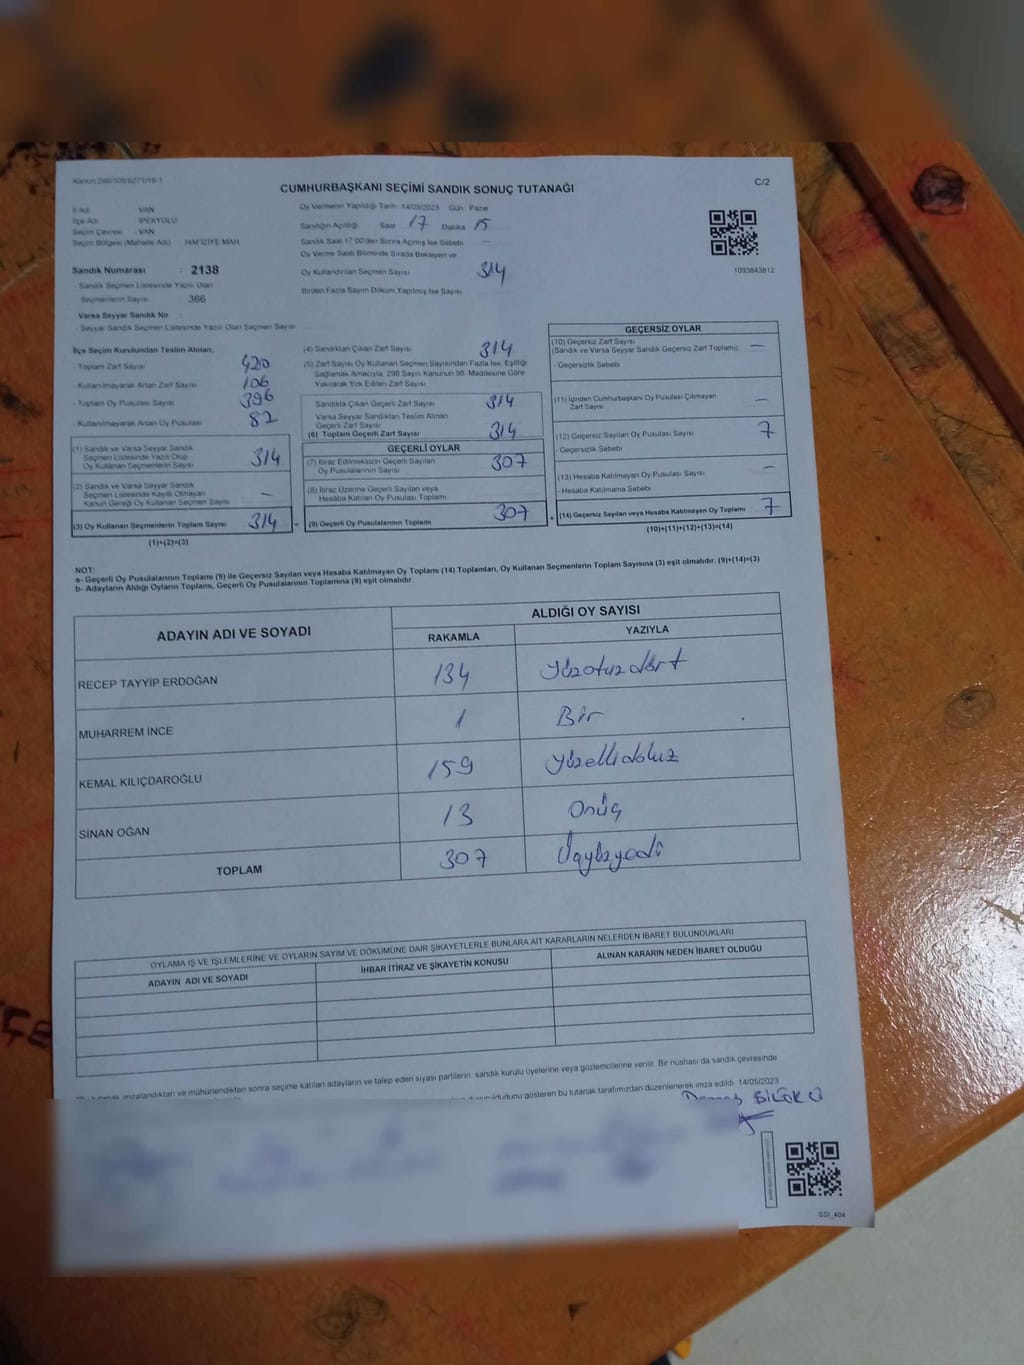 C/2
CUMHURBAŞKANI SEÇİMİ SANDIK SONUÇ TUTANAĞI
İl Adı : VAN
İlçe Adı : İPEKYOLU
Seçim Çevresi : VAN
Seçim Bölgesi (Mahalle Adı) : HAFİZİYE MAH.
Sandık Numarası : 2138
- Sandık Seçmen Listesinde Yazılı Olan
Seçmenlerin Sayısı : 366
Varsa Seyyar Sandık No :
- Seyyar Sandık Seçmen Listesinde Yazılı Olan Seçmen Sayısı
Oy Vermenin Yapıldığı Tarih :14/05/2023 Gün : Pazar
Sandığın Açıldığı Saat 17 Dakika 15
Sandık Saat 17:00'den Sonra Açılmış İse Sebebi -
Oy Verme Saati Bitiminde Sırada Bekleyen ve
Oy Kullandırılan Seçmen Sayısı 314
Birden Fazla Sayım Döküm Yapılmış İse Sayısı
1093843812
İlçe Seçim Kurulundan Teslim Alınan;
- Toplam Zarf Sayısı : 420
- Kullanılmayarak Artan Zarf Sayısı : 106
- Toplam Oy Pusulası Sayısı : 396
- Kullanılmayarak Artan Oy Pusulası : 82
(1) Sandık ve Varsa Seyyar Sandık
Seçmen Listesinde Yazılı Olup
Oy Kullanan Seçmenlerin Sayısı 314
(2) Sandık ve Varsa Seyyar Sandık
Seçmen Listesinde Kayıtlı Olmayan
Kanun Gereği Oy Kullanan Seçmen Sayısı -
(3) Oy Kullanan Seçmenlerin Toplam Sayısı 314
(1)+(2)=(3)
(4) Sandıktan Çıkan Zarf Sayısı 314
(5) Zarf Sayısı Oy Kullanan Seçmen Sayısından Fazla İse, Eşitliği
Sağlamak Amacıyla, 298 Sayılı Kanunun 98. Maddesine Göre
Yakılarak Yok Edilen Zarf Sayısı
Sandıkta Çıkan Geçerli Zarf Sayısı 314
Varsa Seyyar Sandıktan Teslim Alınan
Geçerli Zarf Sayısı
(6) Toplam Geçerli Zarf Sayısı 314
GEÇERLİ OYLAR
(7) İtiraz Edilmeksizin Geçerli Sayılan
Oy Pusulalarının Sayısı 307
(8) İtiraz Üzerine Geçerli Sayılan veya
Hesaba Katılan Oy Pusulası Toplamı
(9) Geçerli Oy Pusulalarının Toplamı 307
GEÇERSİZ OYLAR
(10) Geçersiz Zarf Sayısı
(Sandık ve Varsa Seyyar Sandık Geçersiz Zarf Toplamı) -
- Geçersizlik Sebebi
(11) İçinden Cumhurbaşkanı Oy Pusulası Çıkmayan
Zarf Sayısı -
(12) Geçersiz Sayılan Oy Pusulası Sayısı 7
- Geçersizlik Sebebi
(13) Hesaba Katılmayan Oy Pusulası Sayısı -
- Hesaba Katılmama Sebebi
(14) Geçersiz Sayılan veya Hesaba Katılmayan Oy Toplamı : 7
(10)+(11)+(12)+(13)=(14)
NOT:
a- Geçerli Oy Pusulalarının Toplamı (9) ile Geçersiz Sayılan veya Hesaba Katılmayan Oy Toplamı (14) Toplamları, Oy Kullanan Seçmenlerin Toplam Sayısına (3) eşit olmalıdır. (9)+(14)=(3)
b- Adayların Aldığı Oyların Toplamı, Geçerli Oy Pusulalarının Toplamına (9) eşit olmalıdır.
ADAYIN ADI VE SOYADI
ALDIĞI OY SAYISI
RAKAMLA YAZIYLA
RECEP TAYYİP ERDOĞAN 134 yüzotuzdört
MUHARREM İNCE 1 Bir
KEMAL KILIÇDAROĞLU 159 yüzellidokuz
SİNAN OĞAN 13 Onüç
TOPLAM 307 Üçyüzyedi
OYLAMA İŞ VE İŞLEMLERİNE VE OYLARIN SAYIM VE DÖKÜMÜNE DAİR ŞİKAYETLERLE BUNLARA AİT KARARLARIN NELERDEN İBARET BULUNDUKLARI
ADAYIN ADI VE SOYADI İHBAR İTİRAZ VE ŞİKAYETİN KONUSU ALINAN KARARIN NEDEN İBARET OLDUĞU
imzalandıktan ve mühürlendikten sonra seçime katılan adayların ve talep eden siyasi partilerin sandık kurulu üyelerine veya gözlemcilerine verilir. Bir nüshası da sandık çevresinde
gösteren bu tutanak tarafımızdan düzenlenerek imza edildi. 14/05/2023
SSI_404